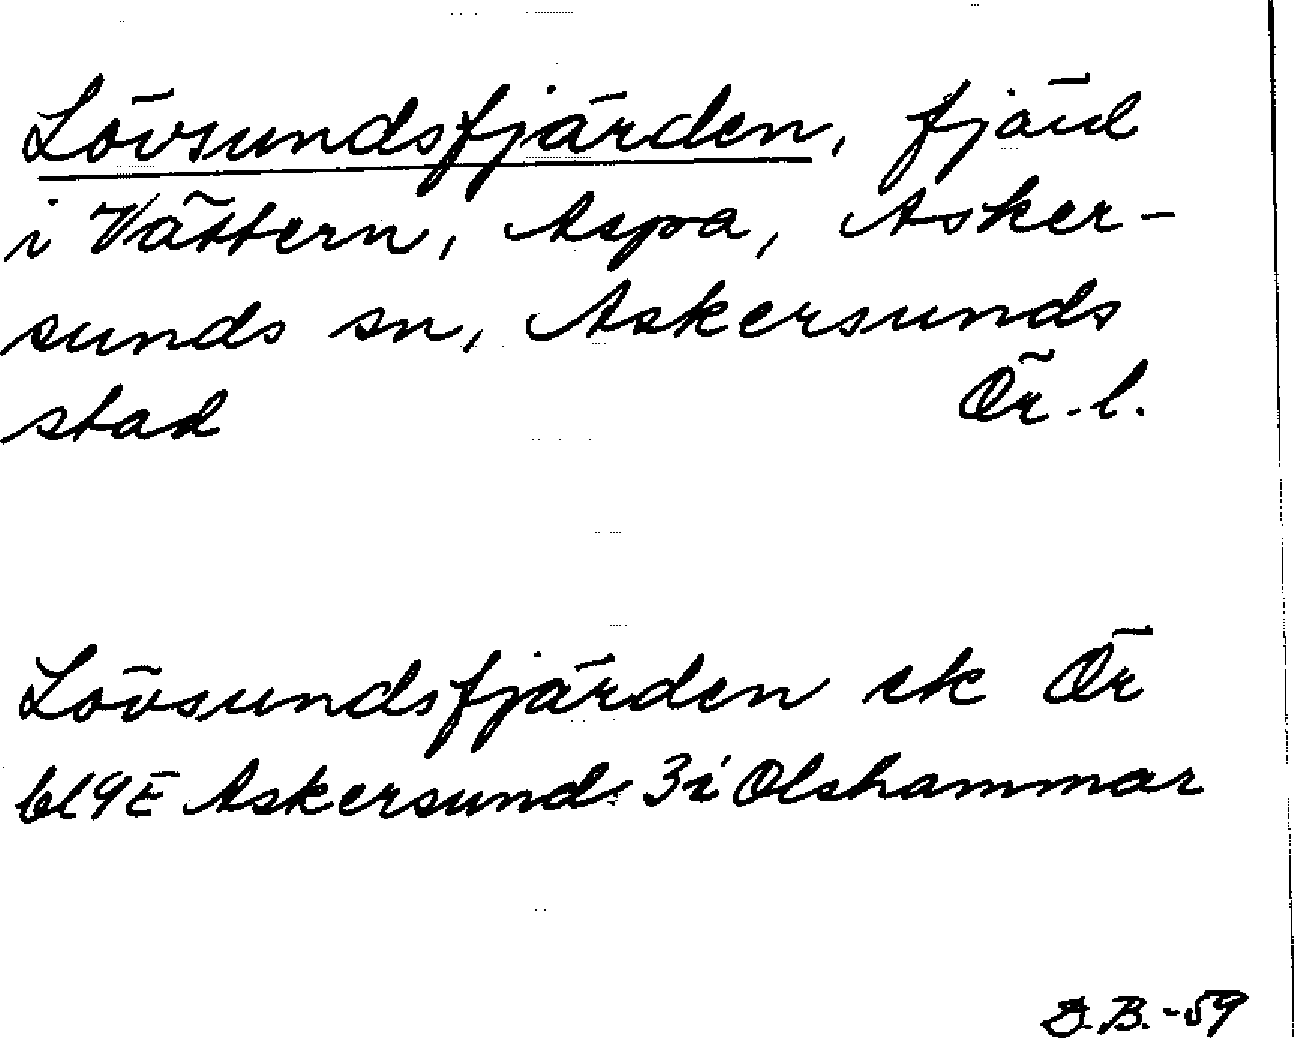 Lövsundsfjärden, fjärd
i Vättern, Aspa, Asker-
sunds sn, Askersunds
stad Ör. l.
Lövsundsfjärden ek Ör
bl 9E Askersund 3i Olshammar
D.B.-59